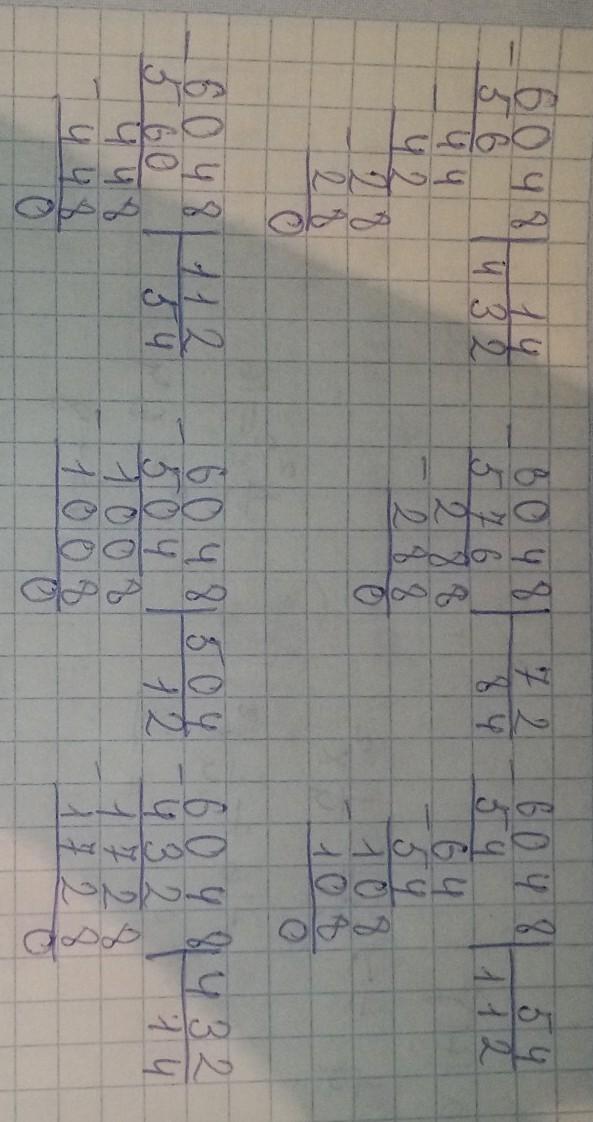 - 6048 | 14
56 | 432
- 44
42
- 28
28
0
- 6048 | 72
576 | 84
- 288
288
0
- 6048 | 54
54 | 112
- 64
54
- 108
108
0
- 6048 | 112
560 | 54
- 448
448
0
- 6048 | 504
504 | 12
- 1008
1008
0
- 6048 | 432
432 | 14
- 1728
1728
0